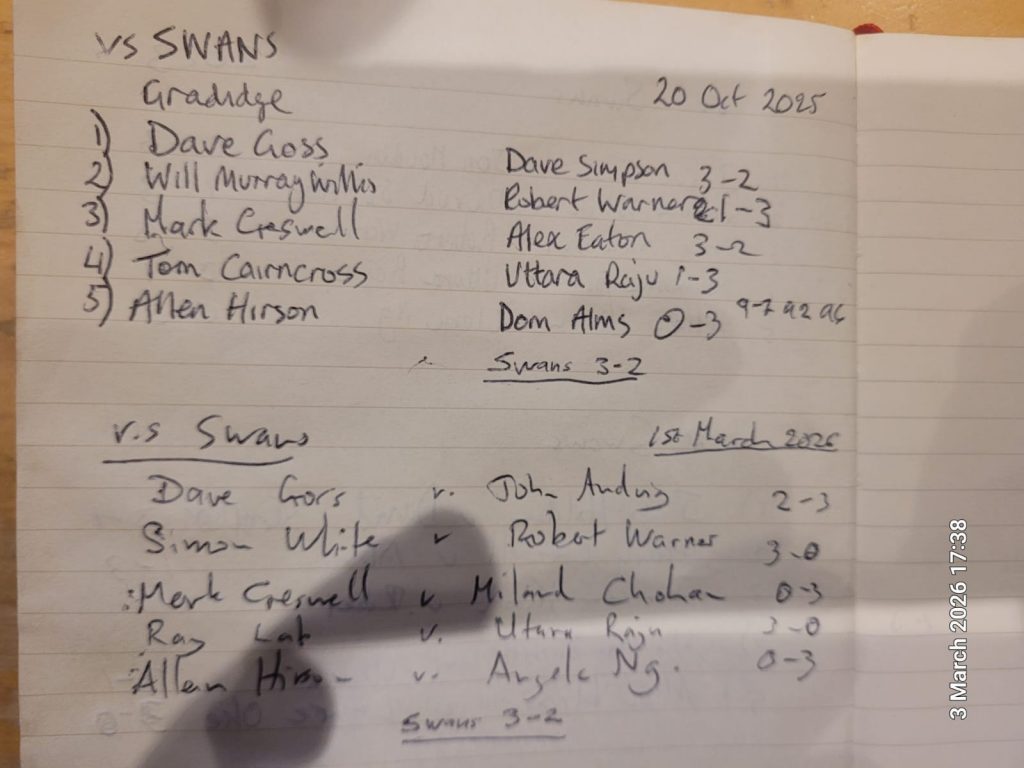 vs SWANS
Gradidge 20 Oct 2025
1) Dave Goss Dave Simpson 3-2
2) Will Murray Willis Robert Warner 1-3
3) Mark Creswell Alex Eaton 3-2
4) Tom Cairncross Uttara Raju 1-3
5) Allen Hirson Dom Alms 0-3 9-7 92 96
Swans 3-2
v.s Swans 1st March 2026
Dave Goss v. John 2-3
Simon White v Robert Warner 3-0
Mark Creswell v. Milind Chohan 0-3
Ray v. Uttara Raju 3-0
Allen Hirson v. Angela Ng. 0-3
Swans 3-2
3 March 2026 17:38